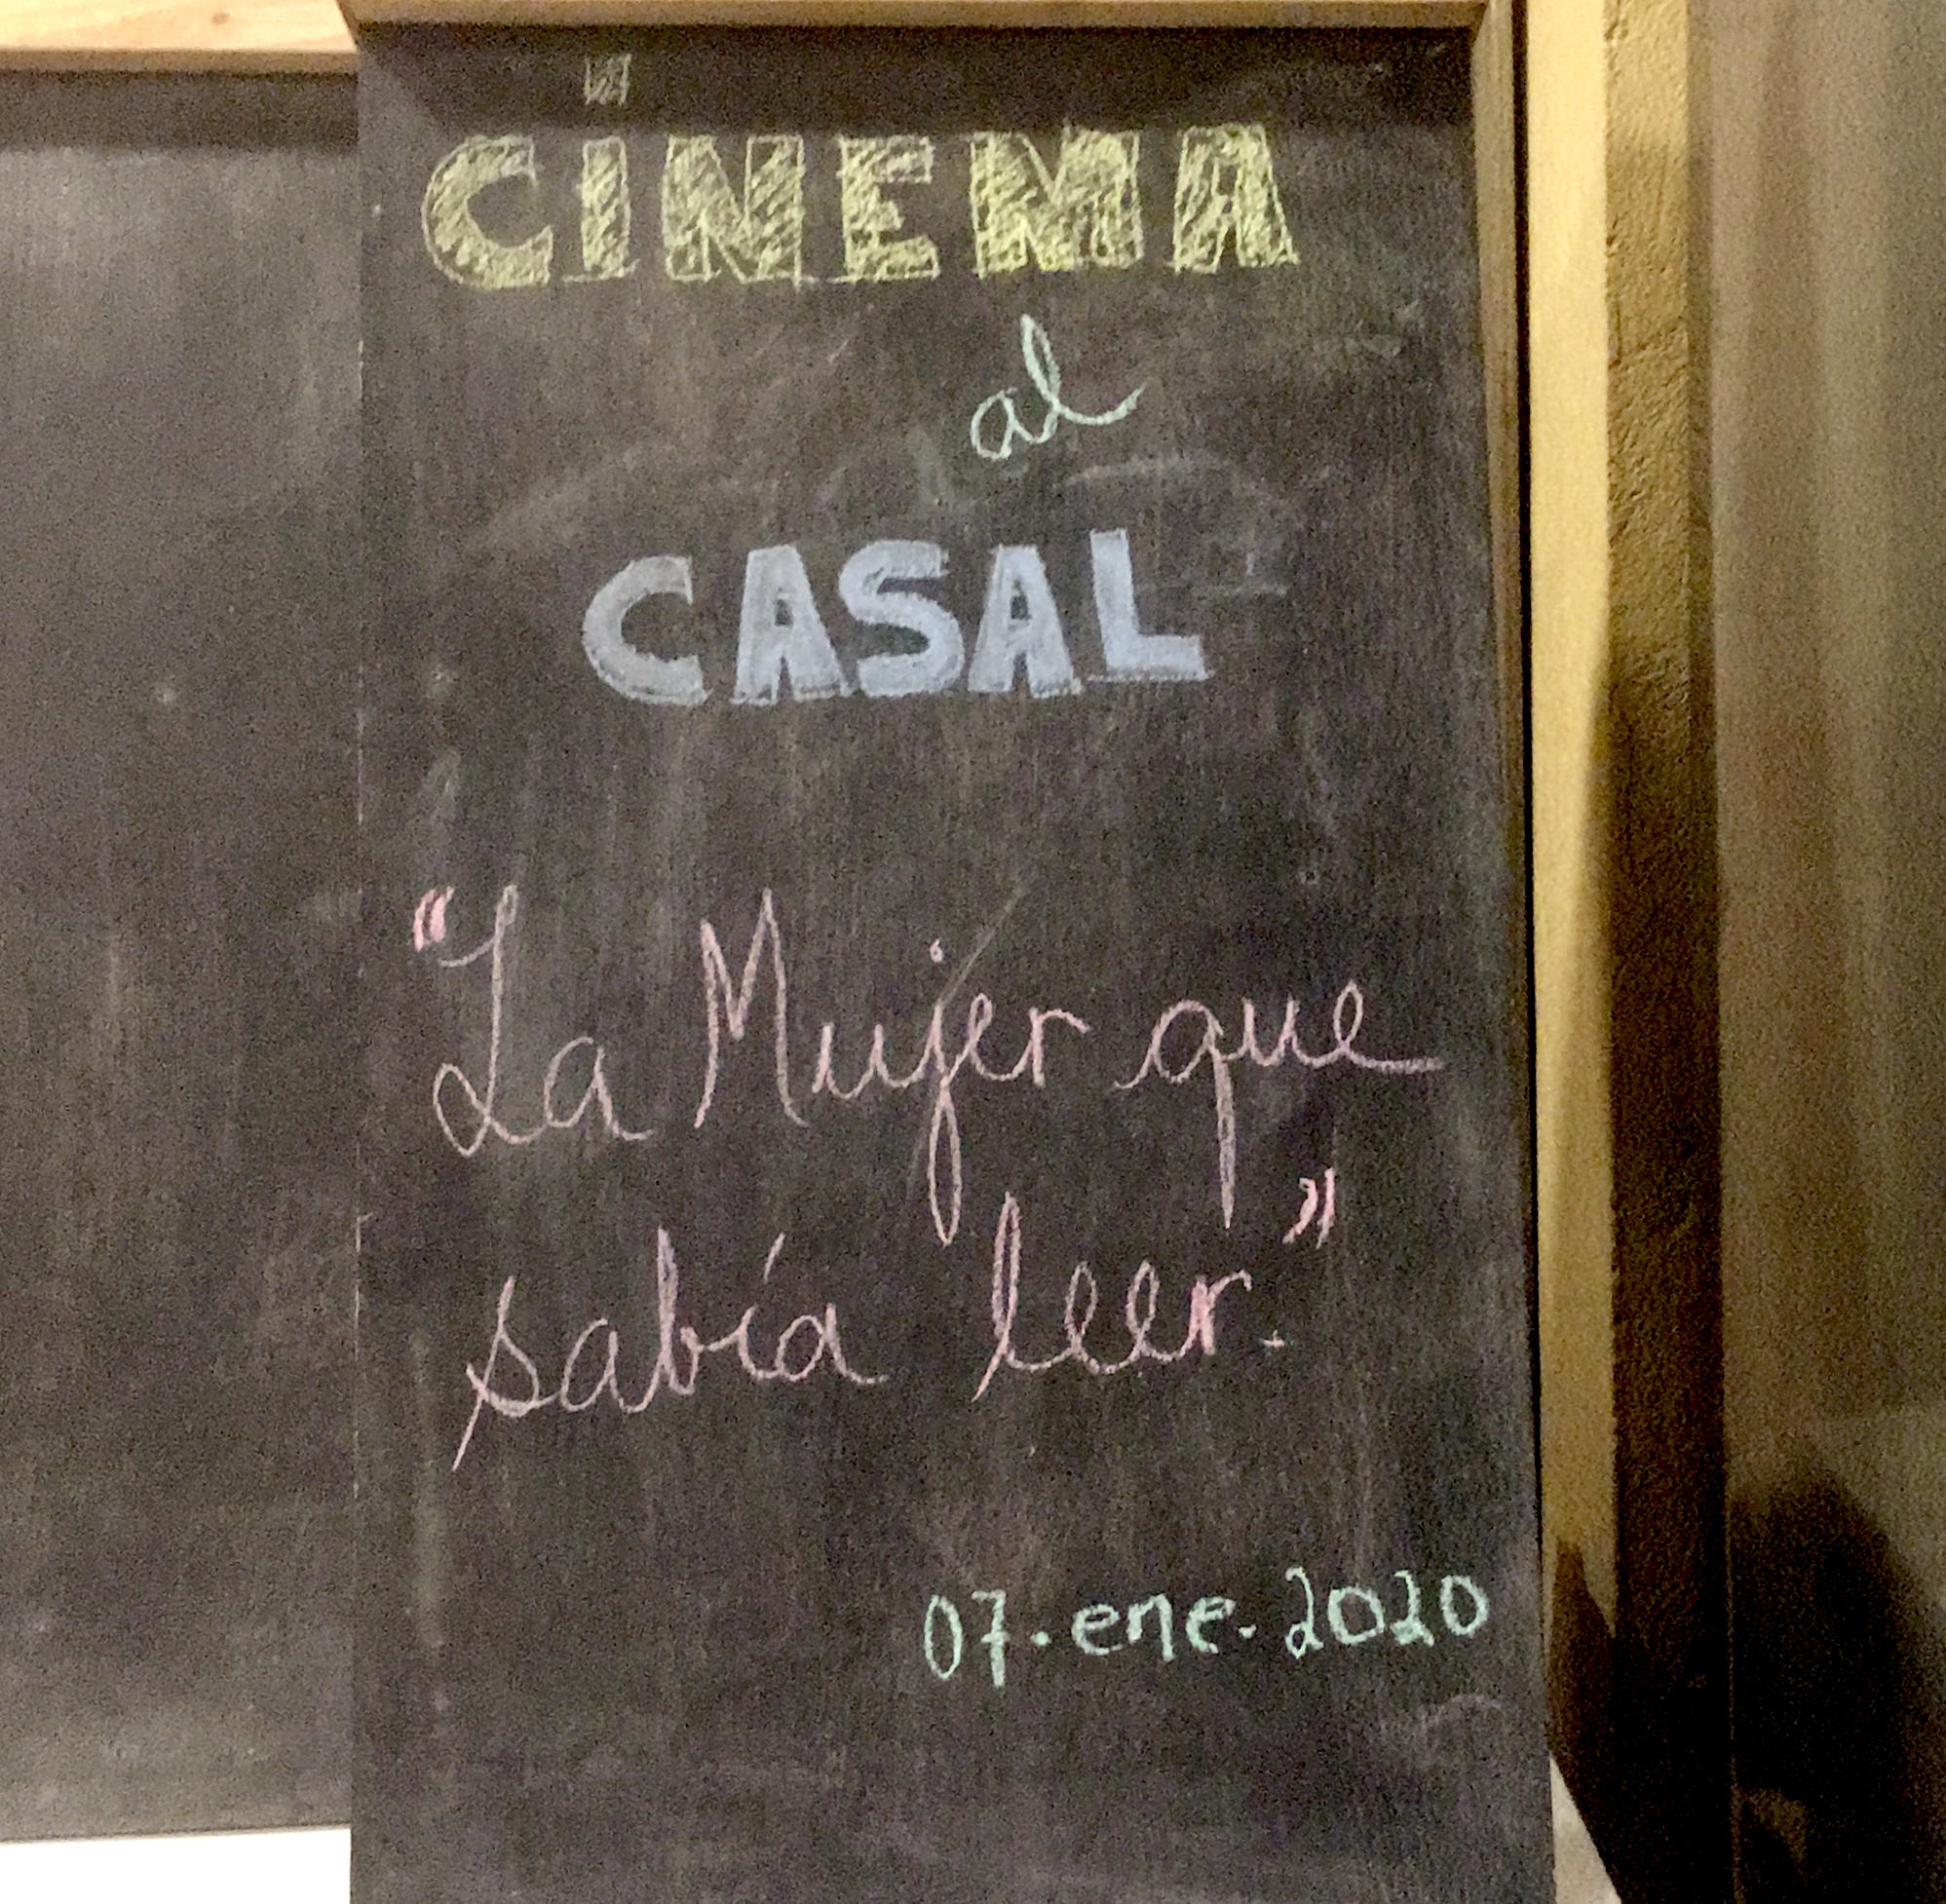 CINEMA
al
CASAL
"La Mujer que
sabía leer."
07.ene.2020